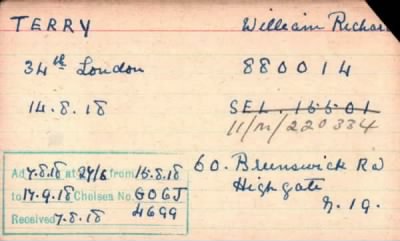 TERRY William Richar
34th London 880014
14.8.18 SEL.15501
11/M/220334
Ad 7.8.18 at 27/6 from 15.8.18
to 17.9.18 Chelsea No. 6OGJ
Received 7.8.18 4699
60. Brunswick Rd
Highgate
N. 19.